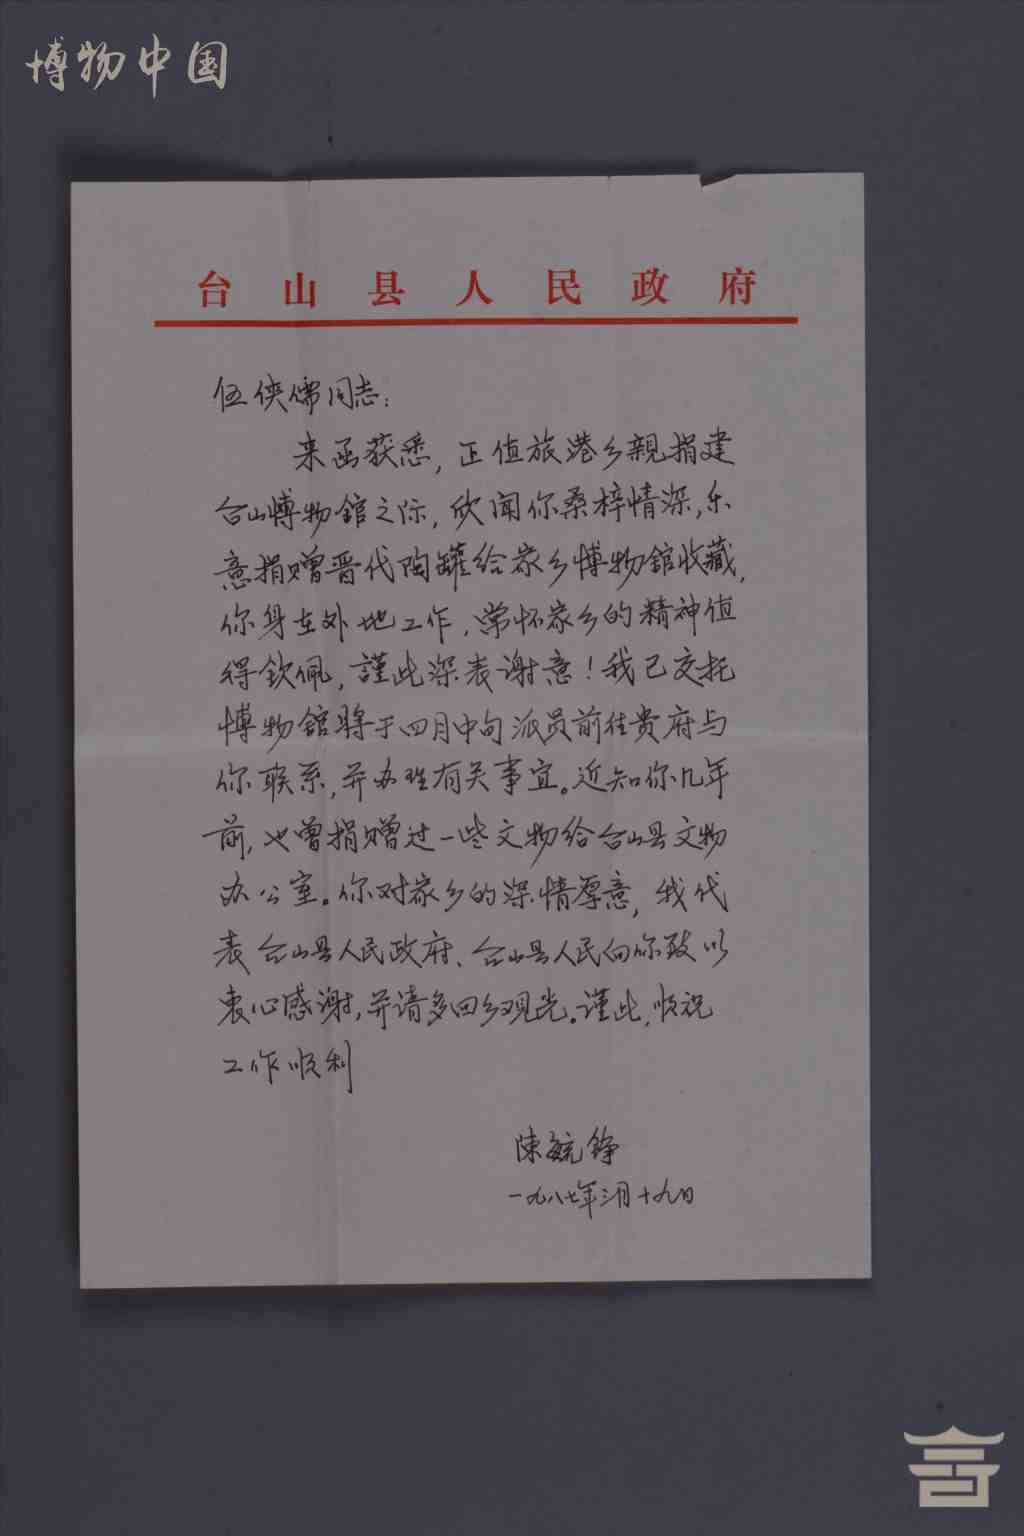 博物中国
台山县人民政府
伍侠儒同志:
来函获悉,正值旅港乡親捐建
台山博物館之际,欣闻你桑梓情深,乐
意捐赠晋代陶罐给家乡博物館收藏,
你身在外地工作,常怀家乡的精神值
得钦佩,謹此深表谢意!我已交托
博物館将于四月中旬派员前往贵府与
你联系,并办理有关事宜。近知你几年
前,也曾捐赠过一些文物给台山县文物
办公室。你对家乡的深情厚意,我代
表台山县人民政府、台山县人民向你致以
衷心感谢,并请多回乡观光。谨此,顺祝
工作顺利
陳毓铮
一九八七年三月十九日